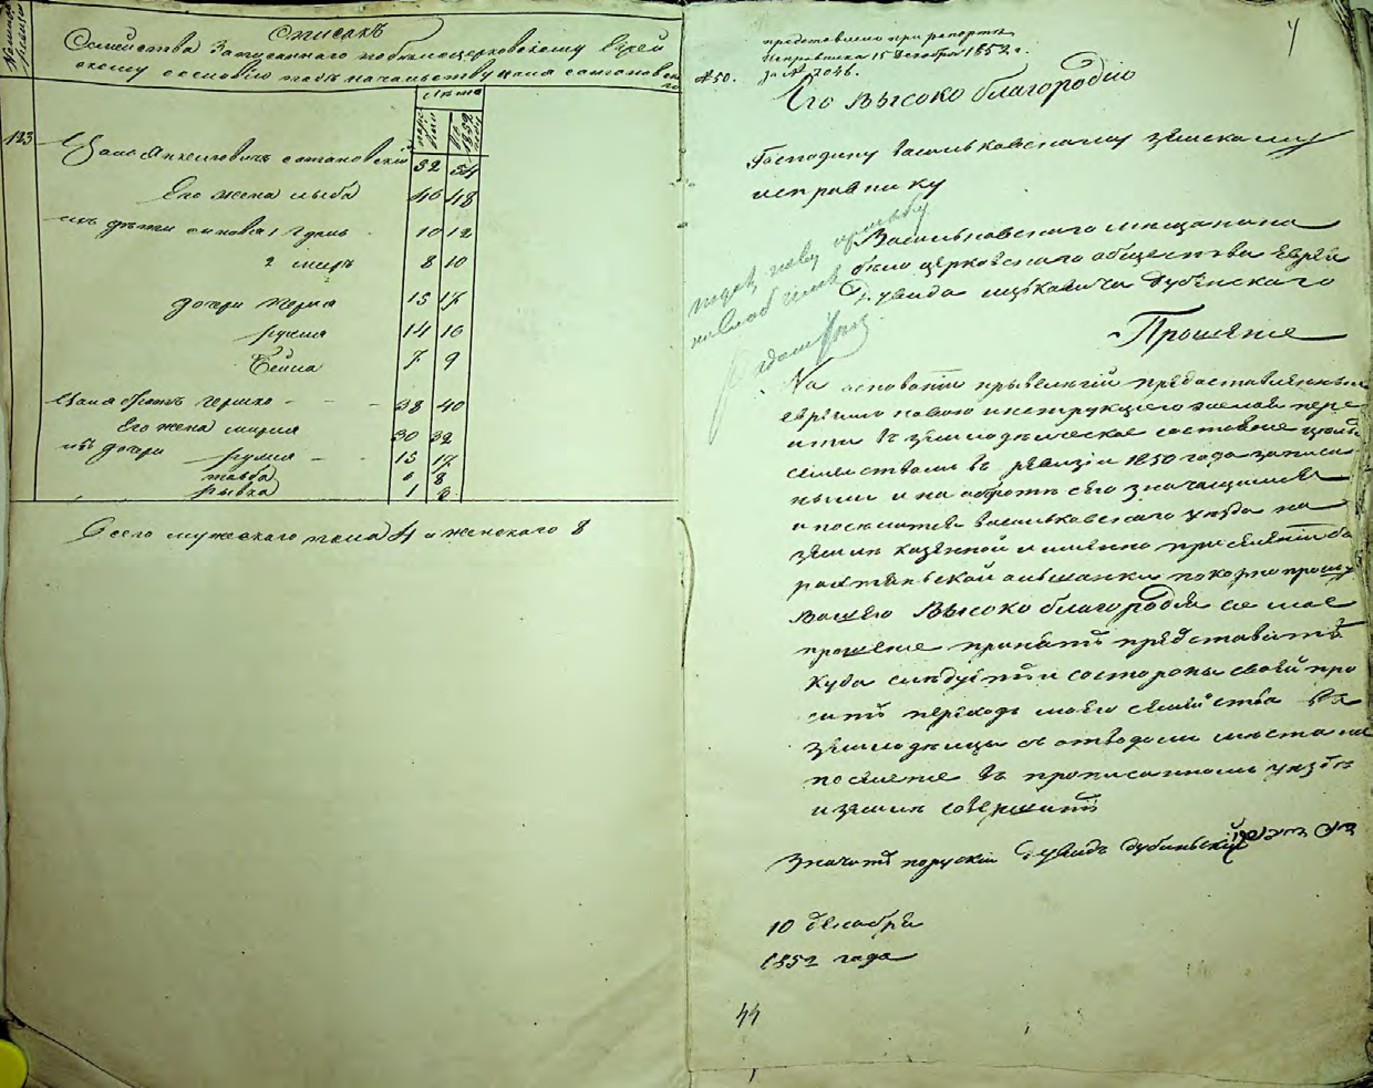 Списокъ
Семейства Записанного по белоцерковскому Еврей
скому сословію подъ начальствую Цаля сатановска
го
Номеръ ревизіи
Лѣта
по ревизіи
въ 1852 году
123
Цаль Янкелевичъ сатановскій 52 54
Его жена лыба 46 48
ихъ дѣти сыновья 1 10 12
2 8 10
дочери перля 15 17
рухля 14 16
бейла 7 9
Цаля братъ гершко - - - 38 40
Его жена мирля 30 32
ихъ дочери рухля - - 15 17
тавба 6 8
рывка 1 3
Всего мужеского пола 4 и женского 8
4
представлено при рапортѣ
Исправника 15 Декабря 1852 г.
за № 2046.
№ 50.
Его Высоко благородію
Господину васильковскому земскому
исправнику
Васильковского мещанина
бело церковского общества Еврея
Дувида ицковича Дубенского
Прошение
На основаніи прывелегій предоставленныхъ
евреямъ новою инструкціею желая пере
ити въ земледѣлческое состояніе цѣлымъ
семействомъ въ ревизіи 1850 года записан
ными и на обротѣ сего значащимися
и поселится васильковского уезда на
земли казенной и именно при селеніи
ольшанки покорно прошу
Вашего Высоко благородія сіе мое
прошение принять представить
куда слѣдуетъ и состороны своей про
сить переходъ моего семейства въ
земледѣлцы съ отводомъ места на
поселение въ прописанномъ уездѣ
и земли совершить
Значитъ поруский Дувидъ дубинский
10 декабря
1852 года
44